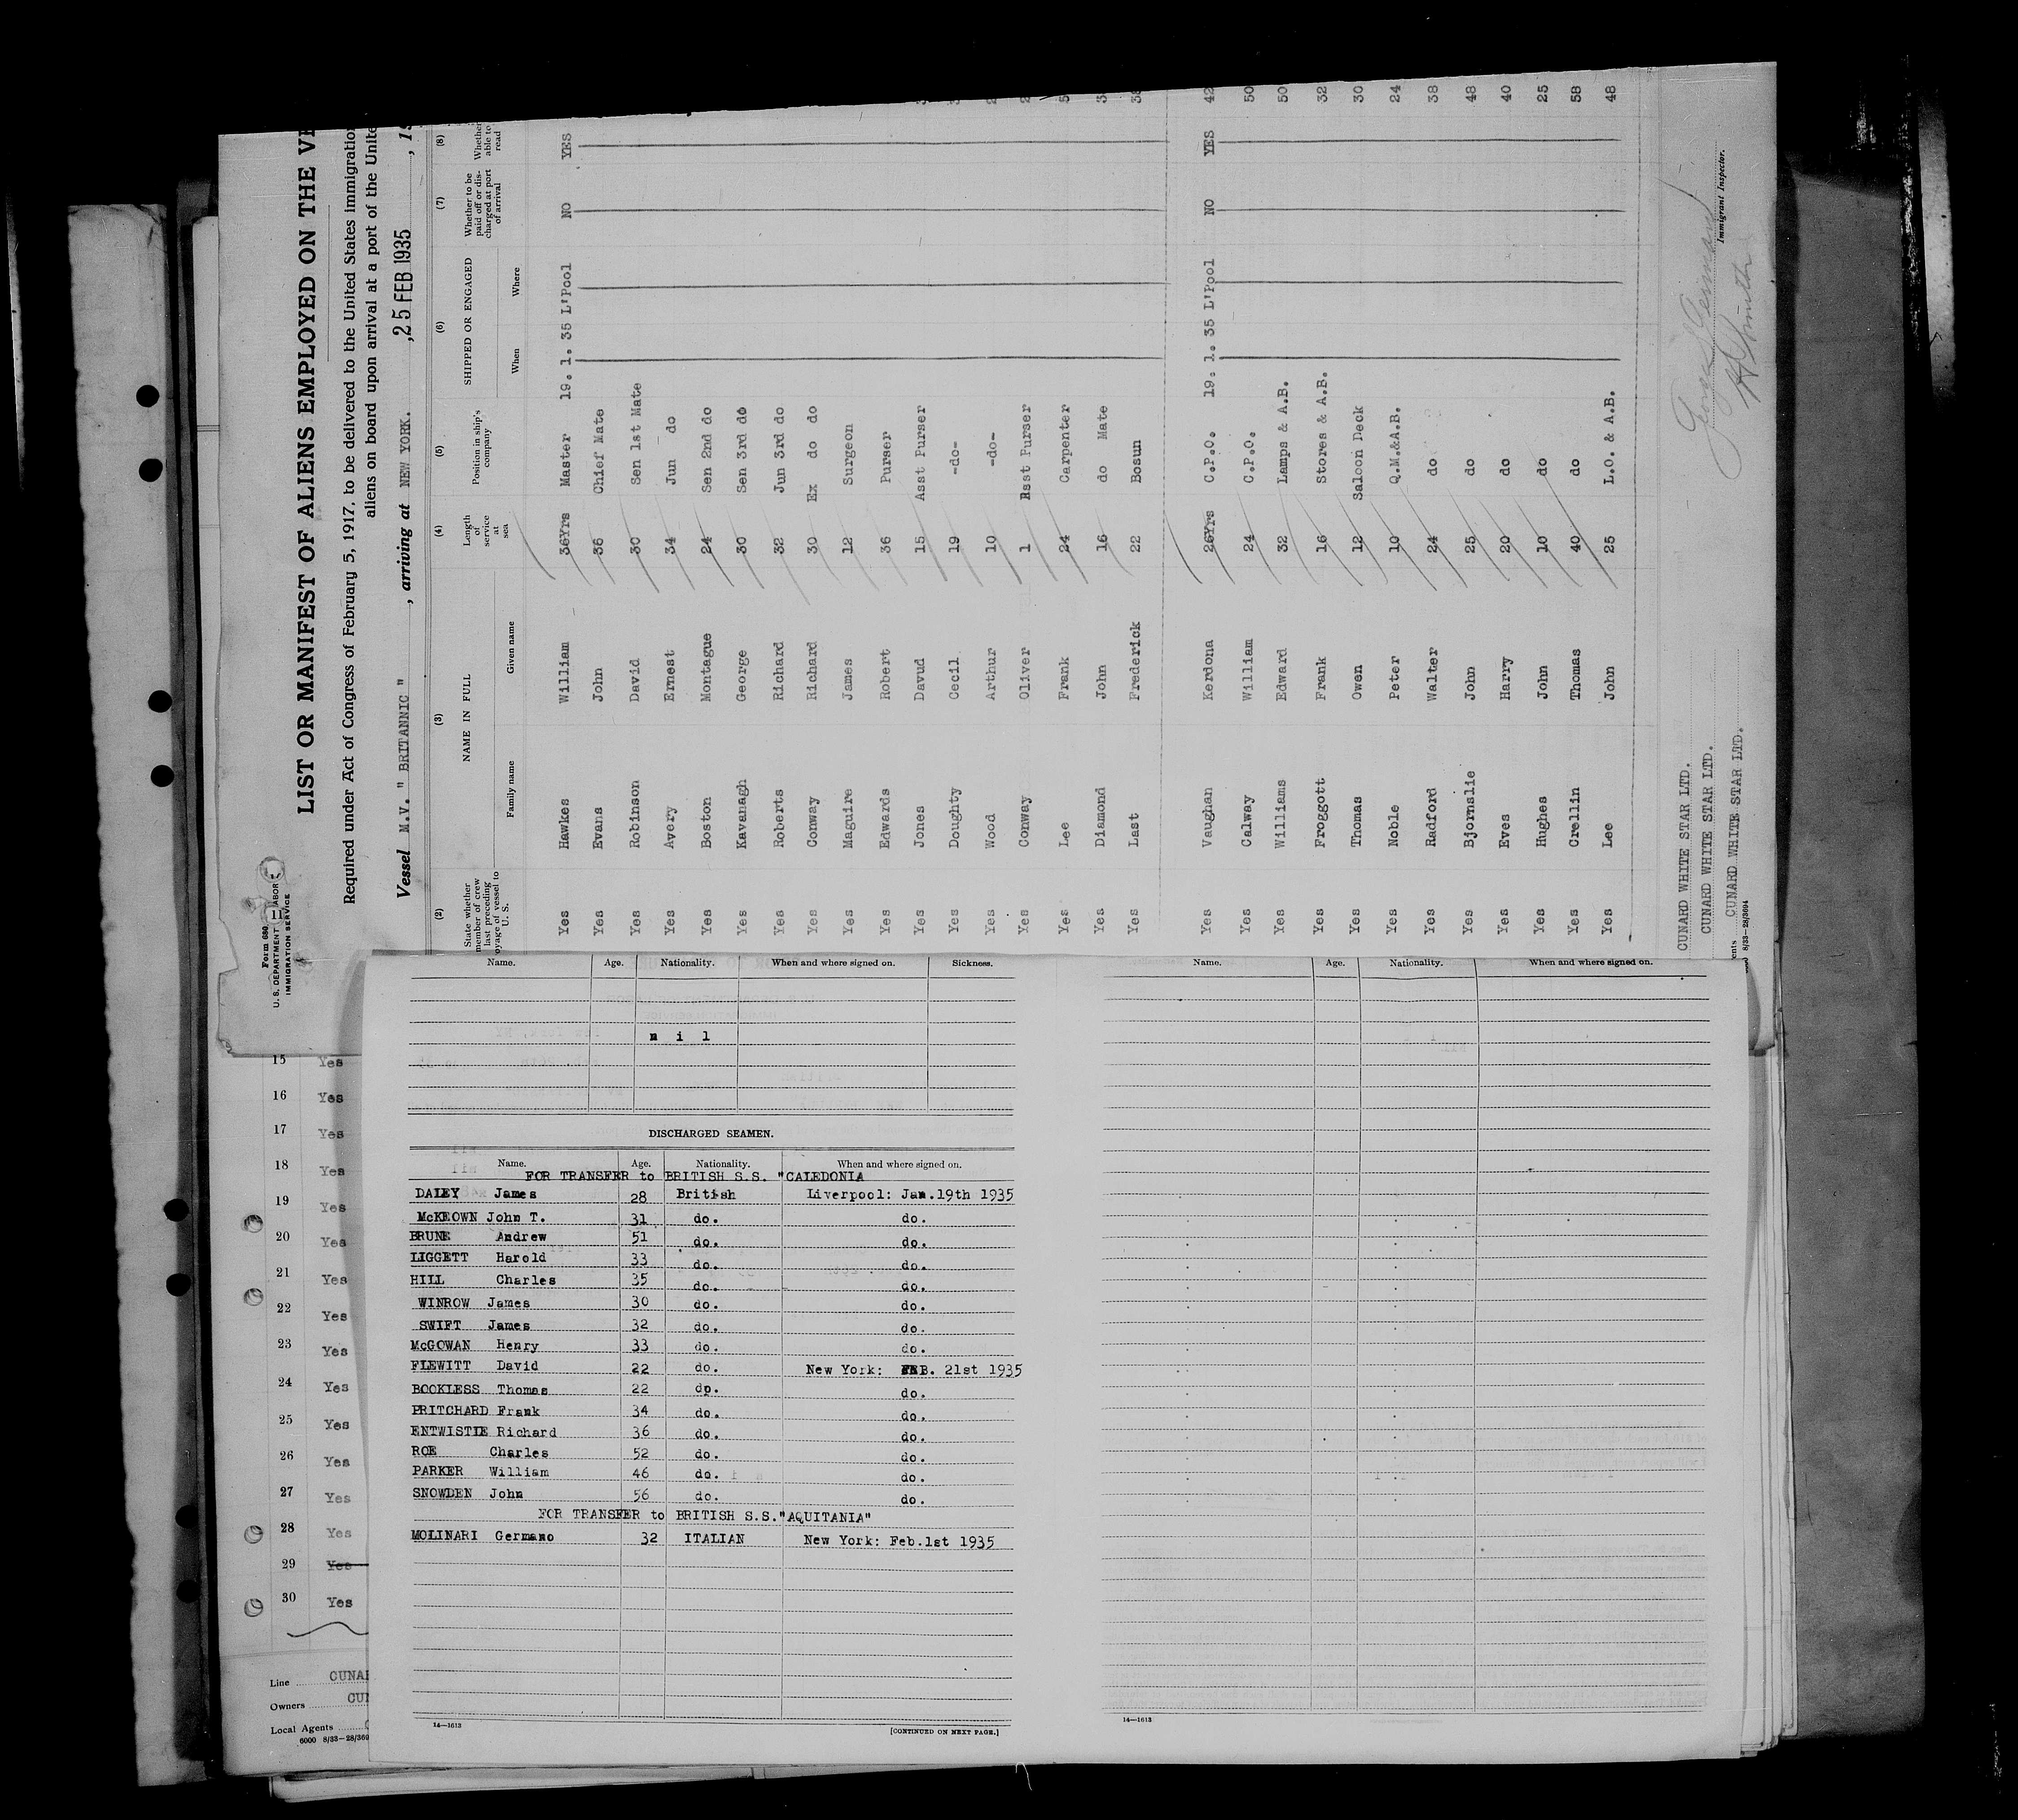 Form 680
U. S. DEPARTMENT LABOR
IMMIGRATION SERVICE
11
LIST OR MANIFEST OF ALIENS EMPLOYED ON THE
Required under Act of Congress of February 5, 1917, to be delivered to the United States immigration
aliens on board upon arrival at a port of the
Vessel M.V. " BRITANNIC " , arriving at NEW YORK. , 25 FEB 1935 ,
(2) (3) (4) (5) (6) (7) (8)
State whether member of crew last preceding voyage of vessel to U. S.
NAME IN FULL
Family name Given name
Length of service at sea
Position in ship's company
SHIPPED OR ENGAGED
When Where
Whether to be paid off or discharged at port of arrival
Whether able to read
Yes Hawkes William 36Yrs Master 19. 1. 35 L'Pool NO YES
Yes Evans John 36 Chief Mate
Yes Robinson David 30 Sen 1st Mate
Yes Avery Ernest 34 Jun do
Yes Boston Montague 24 Sen 2nd do
Yes Kavanagh George 30 Sen 3rd do
Yes Roberts Richard 32 Jun 3rd do
Yes Conway Richard 30 Ex do do
Yes Maguire James 12 Surgeon
Yes Edwards Robert 36 Purser
Yes Jones Davud 15 Asst Purser
Yes Doughty Cecil 19 -do-
Yes Wood Arthur 10 -do-
Yes Conway Oliver 1 Asst Purser
Yes Lee Frank 24 Carpenter
Yes Diamond John 16 do Mate
Yes Last Frederick 22 Bosun
Yes Vaughan Kerdona 26Yrs C.P.O. 19. 1. 35 L'Pool NO YES 42
Yes Calway William 24 C.P.O. 50
Yes Williams Edward 32 Lamps & A.B. 50
Yes Froggott Frank 16 Stores & A.B. 32
Yes Thomas Owen 12 Saloon Deck 30
Yes Noble Peter 10 Q.M.&A.B. 24
Yes Radford Walter 24 do 38
Yes Bjornslie John 25 do 48
Yes Eves Harry 20 do 40
Yes Hughes John 10 do 25
Yes Crellin Thomas 40 do 58
Yes Lee John 25 L.O. & A.B. 48
CUNARD WHITE STAR LTD.
CUNARD WHITE STAR LTD.
CUNARD WHITE STAR LTD.
8/33—28/3694
Immigrant Inspector.
Name. Age. Nationality. When and where signed on. Sickness.
n i l
DISCHARGED SEAMEN.
Name. Age. Nationality. When and where signed on.
FOR TRANSFER to BRITISH S.S. "CALEDONIA
DALEY James 28 British Liverpool: Jan.19th 1935
McKEOWN John T. 31 do. do.
BRUNE Andrew 51 do. do.
LIGGETT Harold 33 do. do.
HILL Charles 35 do. do.
WINROW James 30 do. do.
SWIFT James 32 do. do.
McGOWAN Henry 33 do. do.
FLEWITT David 22 do. New York: FEB. 21st 1935
BOOKLESS Thomas 22 do. do.
PRITCHARD Frank 34 do. do.
ENTWISTLE Richard 36 do. do.
ROE Charles 52 do. do.
PARKER William 46 do. do.
SNOWDEN John 56 do. do.
FOR TRANSFER to BRITISH S.S."AQUITANIA"
MOLINARI Germano 32 ITALIAN New York: Feb.1st 1935
14—1613
[CONTINUED ON NEXT PAGE.]
Name. Age. Nationality. When and where signed on.
14—1613
15 Yes
16 Yes
17 Yes
18 Yes
19 Yes
20 Yes
21 Yes
22 Yes
23 Yes
24 Yes
25 Yes
26 Yes
27 Yes
28 Yes
29 Yes
30 Yes
Line
Owners
Local Agents
6000 8/33—28/369